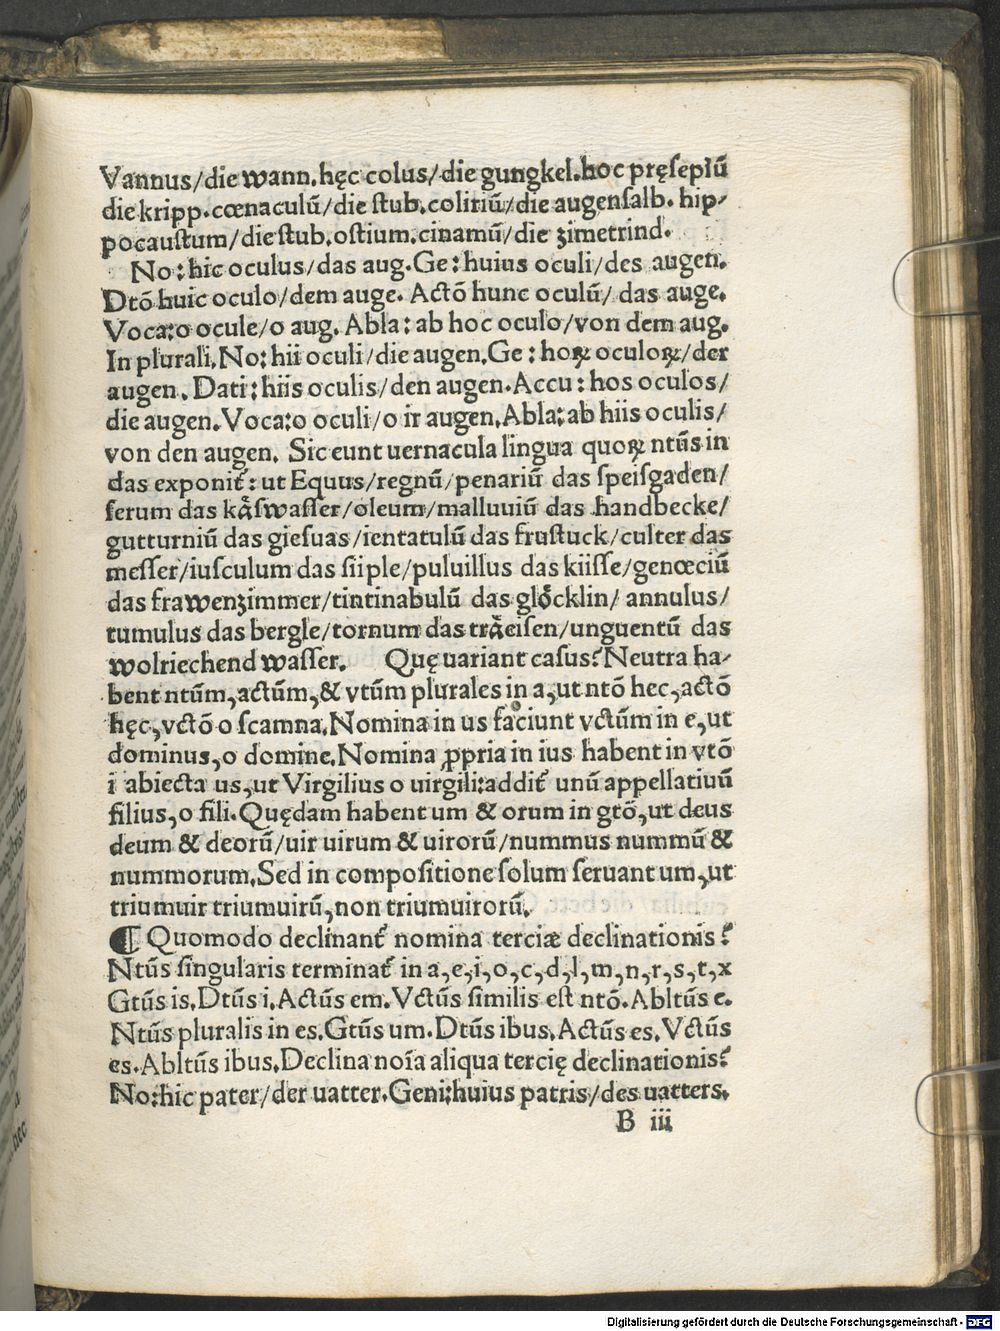 Vannus/die wann.hęc colus/die gungkel.hoc pręsepiū
die kripp.cœnaculū/die stub.coliriū/die augensalb. hip-
pocaustum/die stub.ostium.cinamū/die zimetrind.
No:hic oculus/das aug.Ge:huius oculi/des augen.
Dtō huic oculo/dem auge. Actō hunc oculū/ das auge.
Voca:o ocule/o aug. Abla: ab hoc oculo/von dem aug.
In plurali.No:hii oculi/die augen.Ge: hoꝝ oculoꝝ/der
augen. Dati:hiis oculis/den augen.Accu: hos oculos/
die augen.Voca:o oculi/o ir augen.Abla:ab hiis oculis/
von den augen. Sic eunt uernacula lingua quoꝝ ntūs in
das exponit᷑: ut Equus/regnū/penariū das speisgaden/
serum das kåſwaſſer/oleum/malluuiū das handbecke/
gutturniū das giesuas/ientatulū das frustuck/culter das
meſſer/iusculum das siiple/puluillus das kiiſſe/genœciū
das frawenzimmer/tintinabulū das glöcklin/ annulus/
tumulus das bergle/tornum das träeisen/unguentū das
wolriechend waſſer. Quę uariant casus? Neutra ha-
bent ntūm,actūm,& vtūm plurales in a,ut ntō hec,actō
hęc,vctō o scamna.Nomina in us faciunt vctūm in e,ut
dominus,o domine.Nomina ꝓpria in ius habent in vtō
i abiecta us,ut Virgilius o uirgili:addit᷑ unū appellatiuū
filius,o fili.Quędam habent um & orum in gtō,ut deus
deum & deorū/uir uirum & uirorū/nummus nummū &
nummorum.Sed in compositione solum seruant um,ut
triumuir triumuirū,non triumuirorū.
¶ Quomodo declinant᷑ nomina terciæ declinationis?
Ntūs singularis terminat᷑ in a,e,i,o,c,d,l,m,n,r,s,t,x
Gtūs is.Dtūs i.Actūs em.Vctūs similis est ntō.Abltūs e.
Ntūs pluralis in es.Gtūs um.Dtūs ibus.Actūs es.Vctūs
es.Abltūs ibus.Declina noīa aliqua tercię declinationis?
No:hic pater/der uatter.Geni:huius patris/des uatters.
B iii
Digitalisierung gefördert durch die Deutsche Forschungsgemeinschaft - DFG